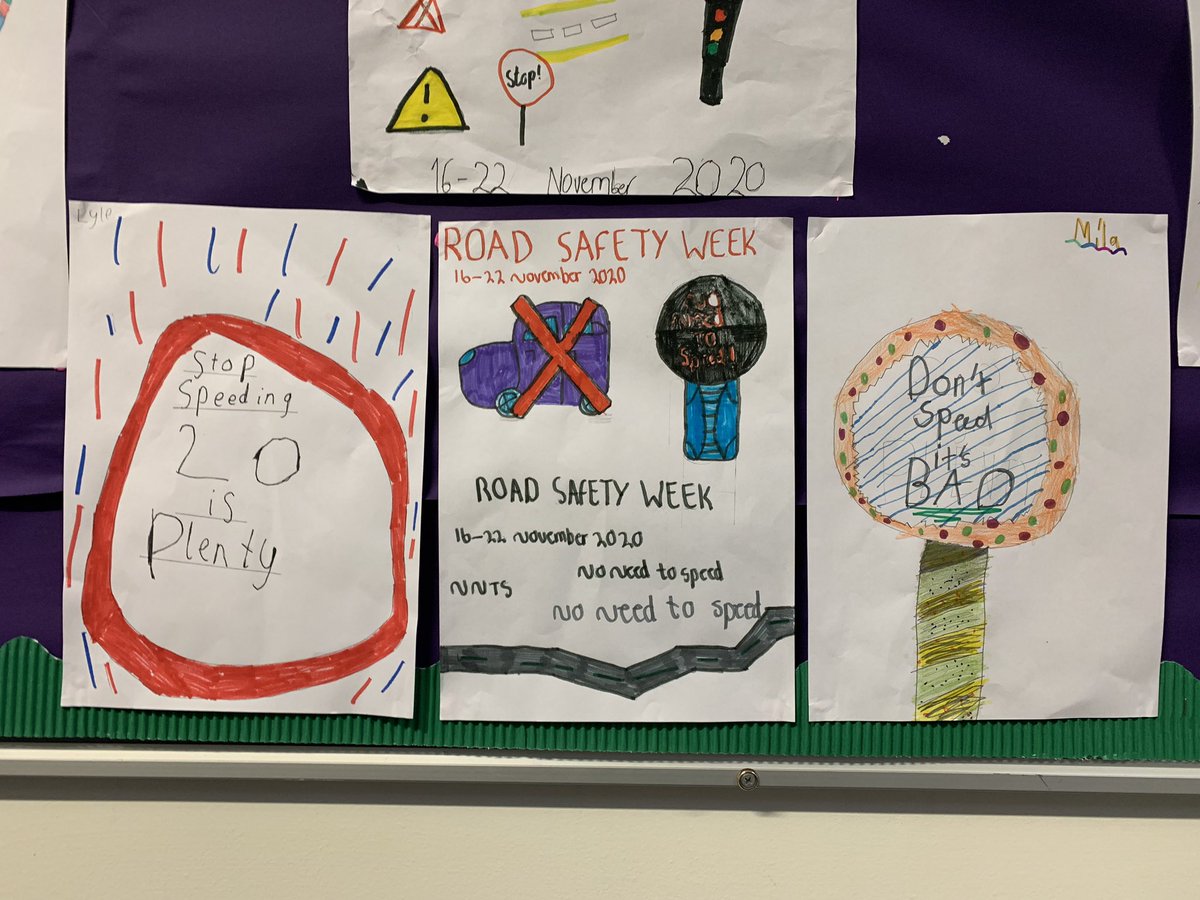 !
Stop!
16-22 November 2020
Lyle
Stop
Speeding
20
is
Plenty
ROAD SAFETY WEEK
16-22 November 2020
NO
need
TO
Speed!
ROAD SAFETY WEEK
16-22 November 2020
NNTS
No need to speed
No need to speed
Mila
Don't
Speed
it's
BAD